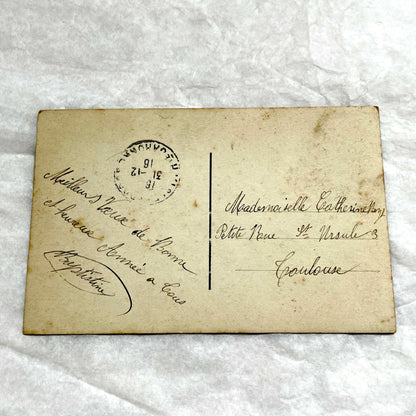 16
31-12
16
Meilleurs Vœux de Bonne
et heureuse Année a tous
Baptistine
Mademoiselle Catherine
Petite Rue St Ursule 3
Toulouse